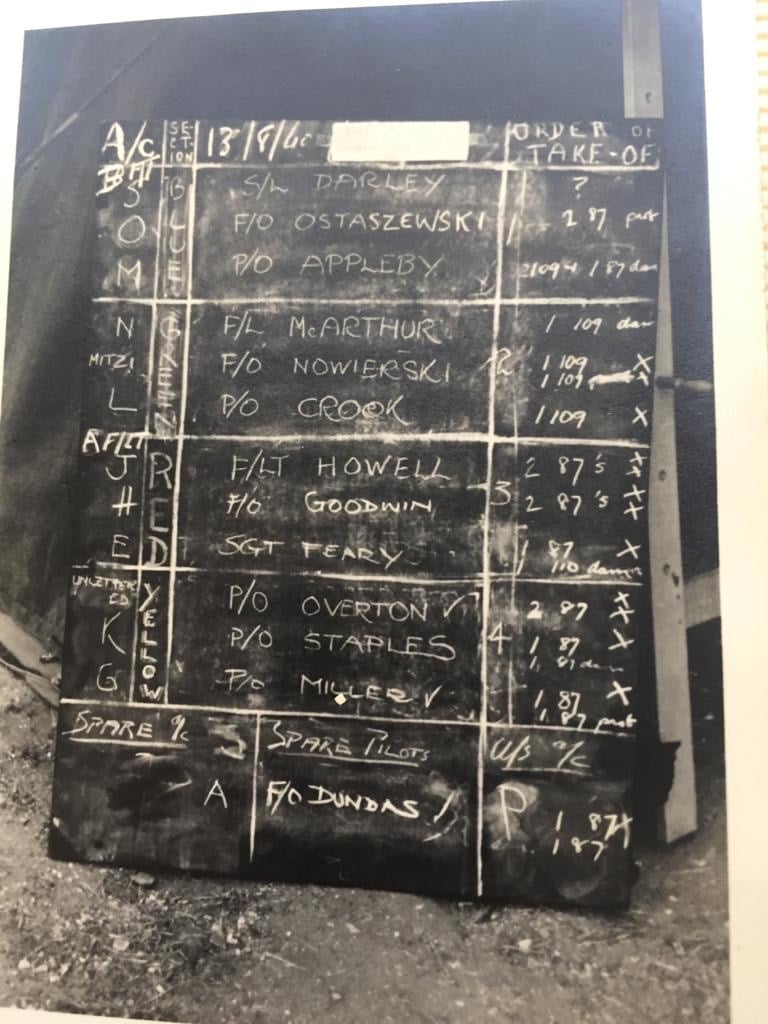 A/C SECTION 13/8/40 ORDER OF TAKE-OF
B FLT
S BLUE S/L DARLEY 1 ?
O F/O OSTASZEWSKI 2 87
M P/O APPLEBY 1 87 dam
N GREEN F/L McARTHUR 1 109 dam
MITZI F/O NOWIERSKI 2 1 109 X
1 109 X
L P/O CROOK 1 109 X
A FLT
J RED F/LT HOWELL 2 87's XX
H F/O GOODWIN 3 2 87's XX
E SGT FEARY 1 87 X
1 110
UNLETTERED YELLOW P/O OVERTON ✓ 2 87 XX
K P/O STAPLES 4 1 87 X
1 87 dam
G P/O MILLER ✓ 1 87 X
1 87
SPARE A/C SPARE PILOTS U/S A/C
A F/O DUNDAS P 1 87 X
1 87